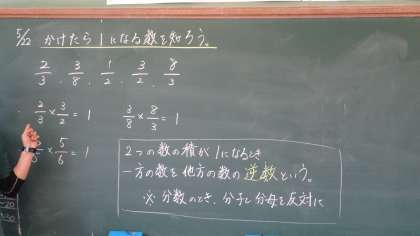 5/22 かけたら1になる数を知ろう。
2/3 . 3/8 . 1/2 . 3/2 . 8/3
2/3 × 3/2 = 1 3/8 × 8/3 = 1
× 5/6 = 1
2つの数の積が1になるとき
一方の数を他方の数の逆数という。
※ 分数のとき、分子と分母を反対に